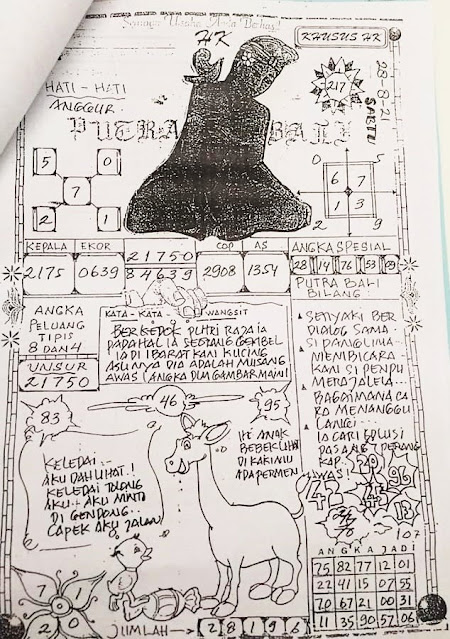 Semoga Usaha Anda Berhasil
HK
KHUSUS HK
217
28-8-21
SABTU
HATI - HATI
ANGGUR
PUTRA BALI
5 0
7
2 1
0 5
6 7
1 3
2 9
KEPALA EKOR 21750 COP AS ANGKA SPESIAL
2175 0639 84639 2908 1354 28 14 76 53 09
PUTRA BALI
BILANG:
ANGKA
PELUANG
TIPIS
8 DAN 4
UNSUR
21750
KATA - KATA WANGSIT
BERKEDOK PUTRI RAJA IA
PADAHAL IA SEORANG GEMBEL
IA DI IBARAT KAN KUCING
ASLINYA DIA ADALAH MUSANG
AWAS (ANGKA DLM GAMBAR MAIN)
SETIYAKI BER
DIALOG SAMA
SI PANGLIMA
MEMBICARA
KAN SI PENDU
MERAJALELA
BAGAIMANA CA
RA MENANGGU
LANGI
IA CARI SOLUSI
PASANG PERANG
KAP.
AWAS!
83
46
95
KELEDAI :-
AKU DAH LIHAT.!
KELEDAI TOLONG
AKU.. AKU MINTA
DI GENDONG..
CAPEK AKU JALAN
IH! ANAK
BEBEK LIHAT
DI KAKIMU
ADA PERMEN
96
43
13
107
7 1
2 0
JUMLAH → 2 8 1 9 6
ANGKA JADI
75 82 77 12 01
22 41 15 07 55
70 67 21 00 31
11 35 90 57 06